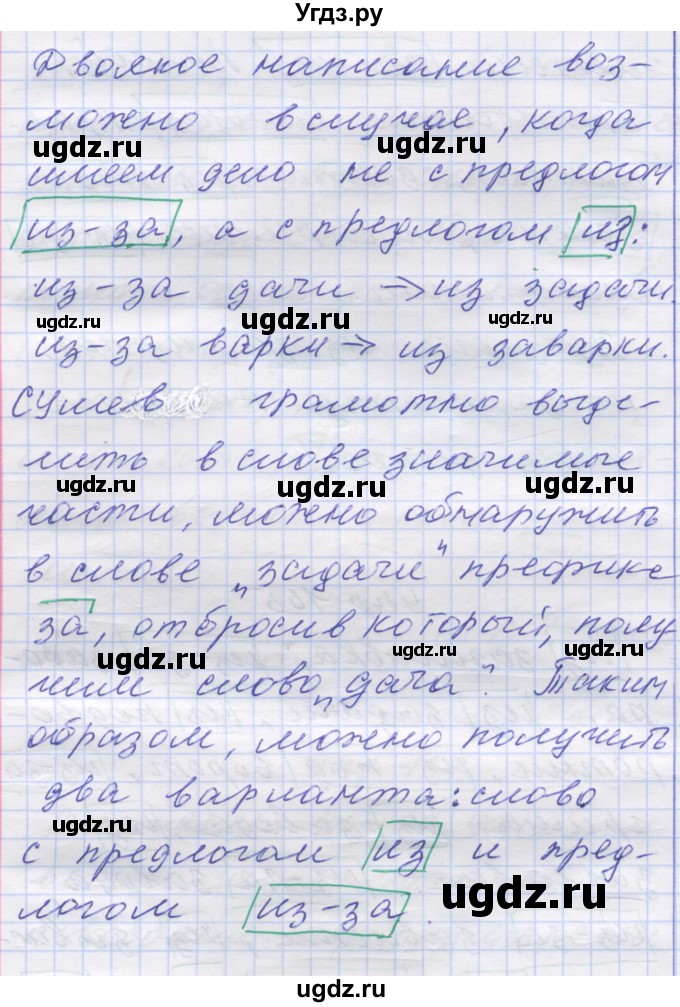 Угдз.ру
Двоякое написание воз-
можно в случае, когда
ugdz.ru ugdz.ru
имеем дело не с предлогом
из-за, а с предлогом из:
из-за дачи → из задачи.
ugdz.ru ugdz.ru ugdz.ru
из-за варки → из заварки.
Сумев грамотно выде-
лить в слове значимые
ugdz.ru ugdz.ru ugdz.ru
части, можно обнаружить
в слове „задачи" префикс
ugdz.ru
за, отбросив который, полу
ugdz.ru ugdz.ru ugdz.ru
чим слово „дача". Таким
образом, можно получить
ugdz.ru ugdz.ru
два варианта: слово
ugdz.ru
с предлогом из и пред-
ugdz.ru ugdz.ru
логом из-за.
ugdz.ru